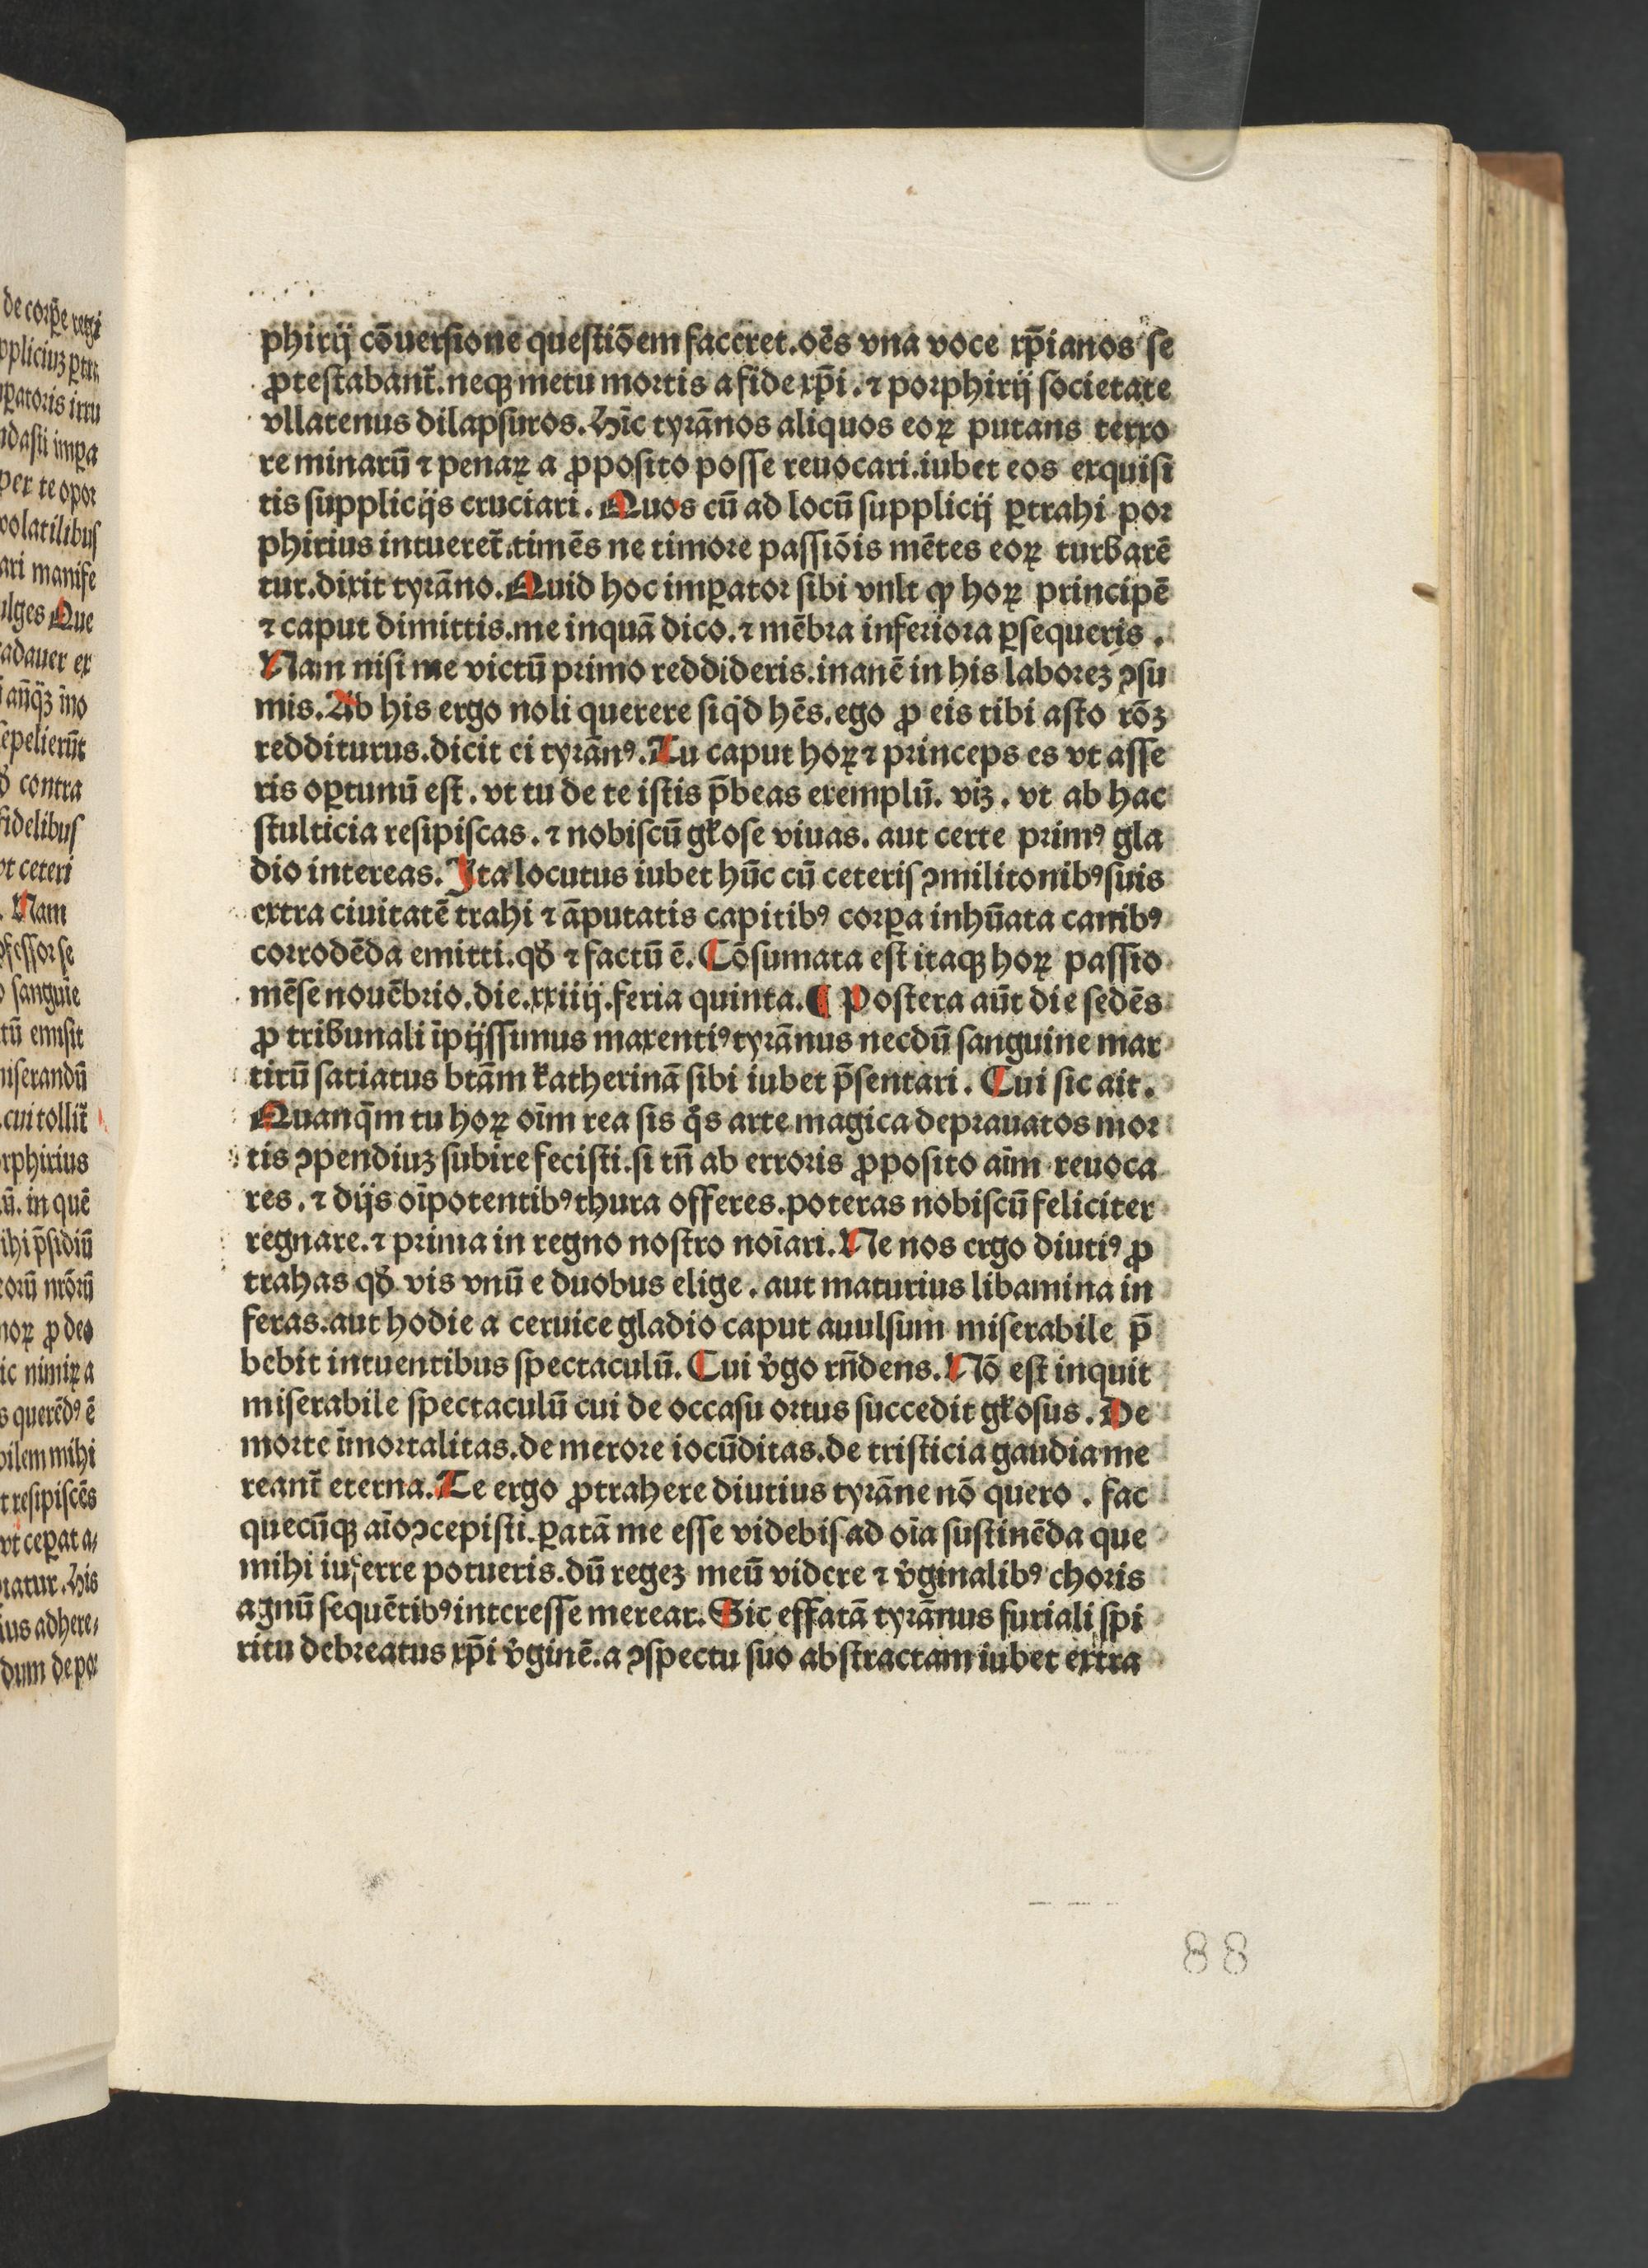 phirij cōuersione questiōem faceret.oēs vna voce xp̄ianos se
ꝓtestabant̄.neqꝫ metu mortis a fide xp̄i.⁊ porphirij societate
vllatenus dilapsuros.Hīc tyrānos aliquos eoꝝ putans terro
re minarū ⁊ penaꝝ a ꝓposito posse reuocari.iubet eos exquisi
tis supplicijs cruciari.Quos cū ad locū supplicij ꝑtrahi por
phirius intueret̄.timēs ne timore passiōis mētes eoꝝ turbarē
tur.dixit tyrāno.Quid hoc imꝑator sibi vnlt ꝙ hoꝝ principē
⁊ caput dimittis.me inquā dico.⁊ mēbra inferiora ꝑsequeris.
Nam nisi me victū primo reddideris.inanē in his laboreꝫ ꝯsu
mis.Ab his ergo noli querere siqͥd hēs.ego ꝓ eis tibi asto rōꝫ
redditurus.dicit ei tyrānꝰ.Tu caput hoꝝ ⁊ princeps es vt asse
ris oꝑtunū est.vt tu de te istis p̄beas exemplū.viꝫ.vt ab hac
stulticia resipiscas.⁊ nobiscū gl̄ose viuas.aut certe primꝰ gla
dio intereas.Ita locutus iubet hūc cū ceteris ꝯmilitonibꝰ suis
extra ciuitatē trahi ⁊ āputatis capitibꝰ corꝑa inhūata canibꝰ
corrodēda emitti.qđ ⁊ factū ē.Cōsumata est itaqꝫ hoꝝ passio
mēse nouēbrio.die.xxiiij.feria quinta.¶ Postera aūt die sedēs
ꝓ tribunali īpijssimus maxentiꝰ tyrānus necdū sanguine mar
tirū satiatus btām katherinā sibi iubet p̄sentari.Cui sic ait.
Quanqᷓm tu hoꝝ oīm rea sis qͦs arte magica deprauatos mor
tis ꝯpendiuꝫ subire fecisti.si tn̄ ab erroris ꝓposito aīm reuoca
res.⁊ dijs oīpotentibꝰ thura offeres.poteras nobiscū feliciter
regnare.⁊ prima in regno nostro noīari.Ne nos ergo diutiꝰ ꝓ
trahas qđ vis vnū e duobus elige.aut maturius libamina in
feras.aut hodie a ceruice gladio caput auulsum miserabile p̄
bebit intuentibus spectaculū.Cui v̓go rn̄dens.Nō est inquit
miserabile spectaculū cui de occasu ortus succedit gl̄osus.De
morte īmortalitas.de merore iocūditas.de tristicia gaudia me
reant̄ eterna.Te ergo ꝓtrahere diutius tyrāne nō quero.fac
quecūqꝫ aīo ꝯcepisti.ꝑatā me esse videbis ad oīa sustinēda que
mihi iuferre potueris.dū regeꝫ meū videre ⁊ v̓ginalibꝰ choris
agnū sequētibꝰ interesse merear.Sic effatā tyrānus furiali spi
ritu debreatus xp̄i v̓ginē.a ꝯspectu suo abstractam iubet extra
88